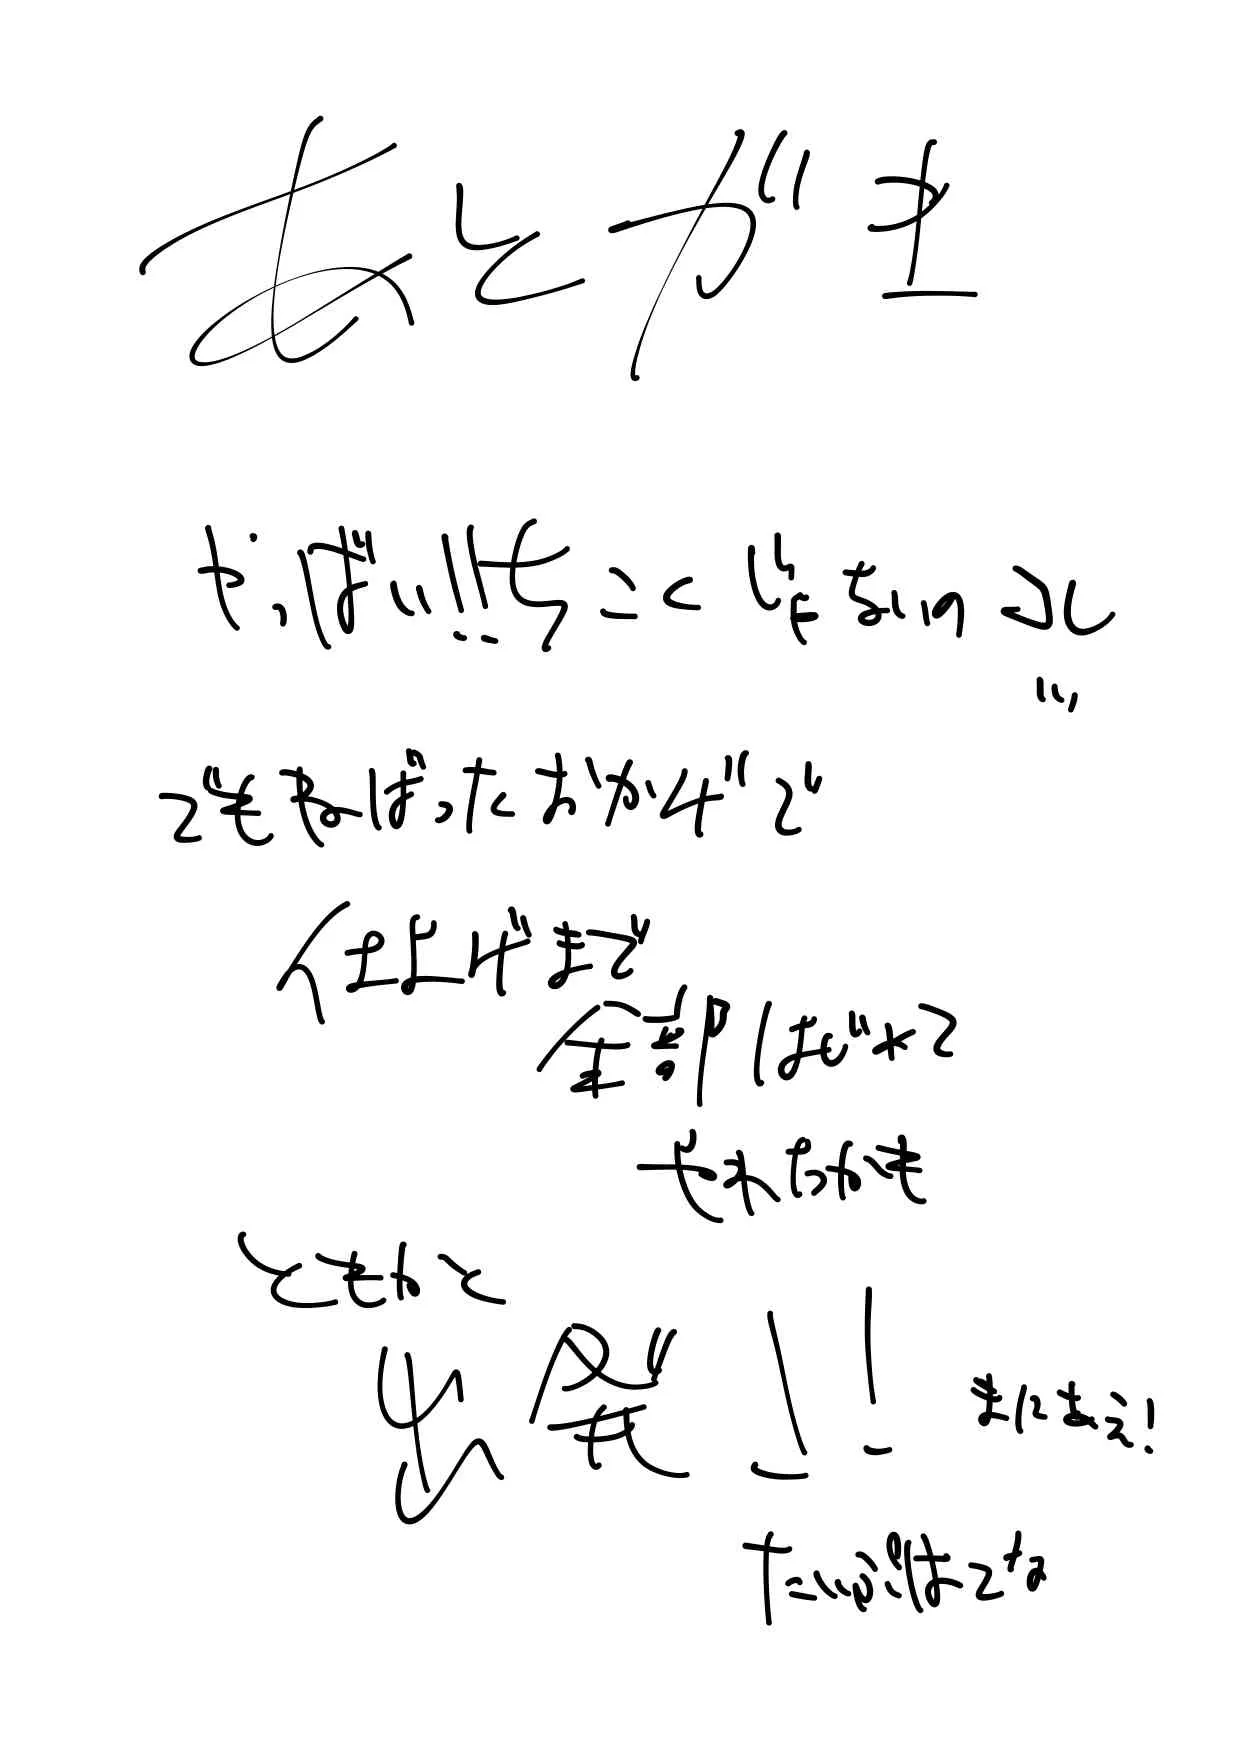 あとがき
やっばい!!ちこくじゃないのコレ
…
でもねばったおかげで
仕上げまで
全部はじめて
やれたかも
ともかく
出発!!
まにあえ!
だいぶはでな